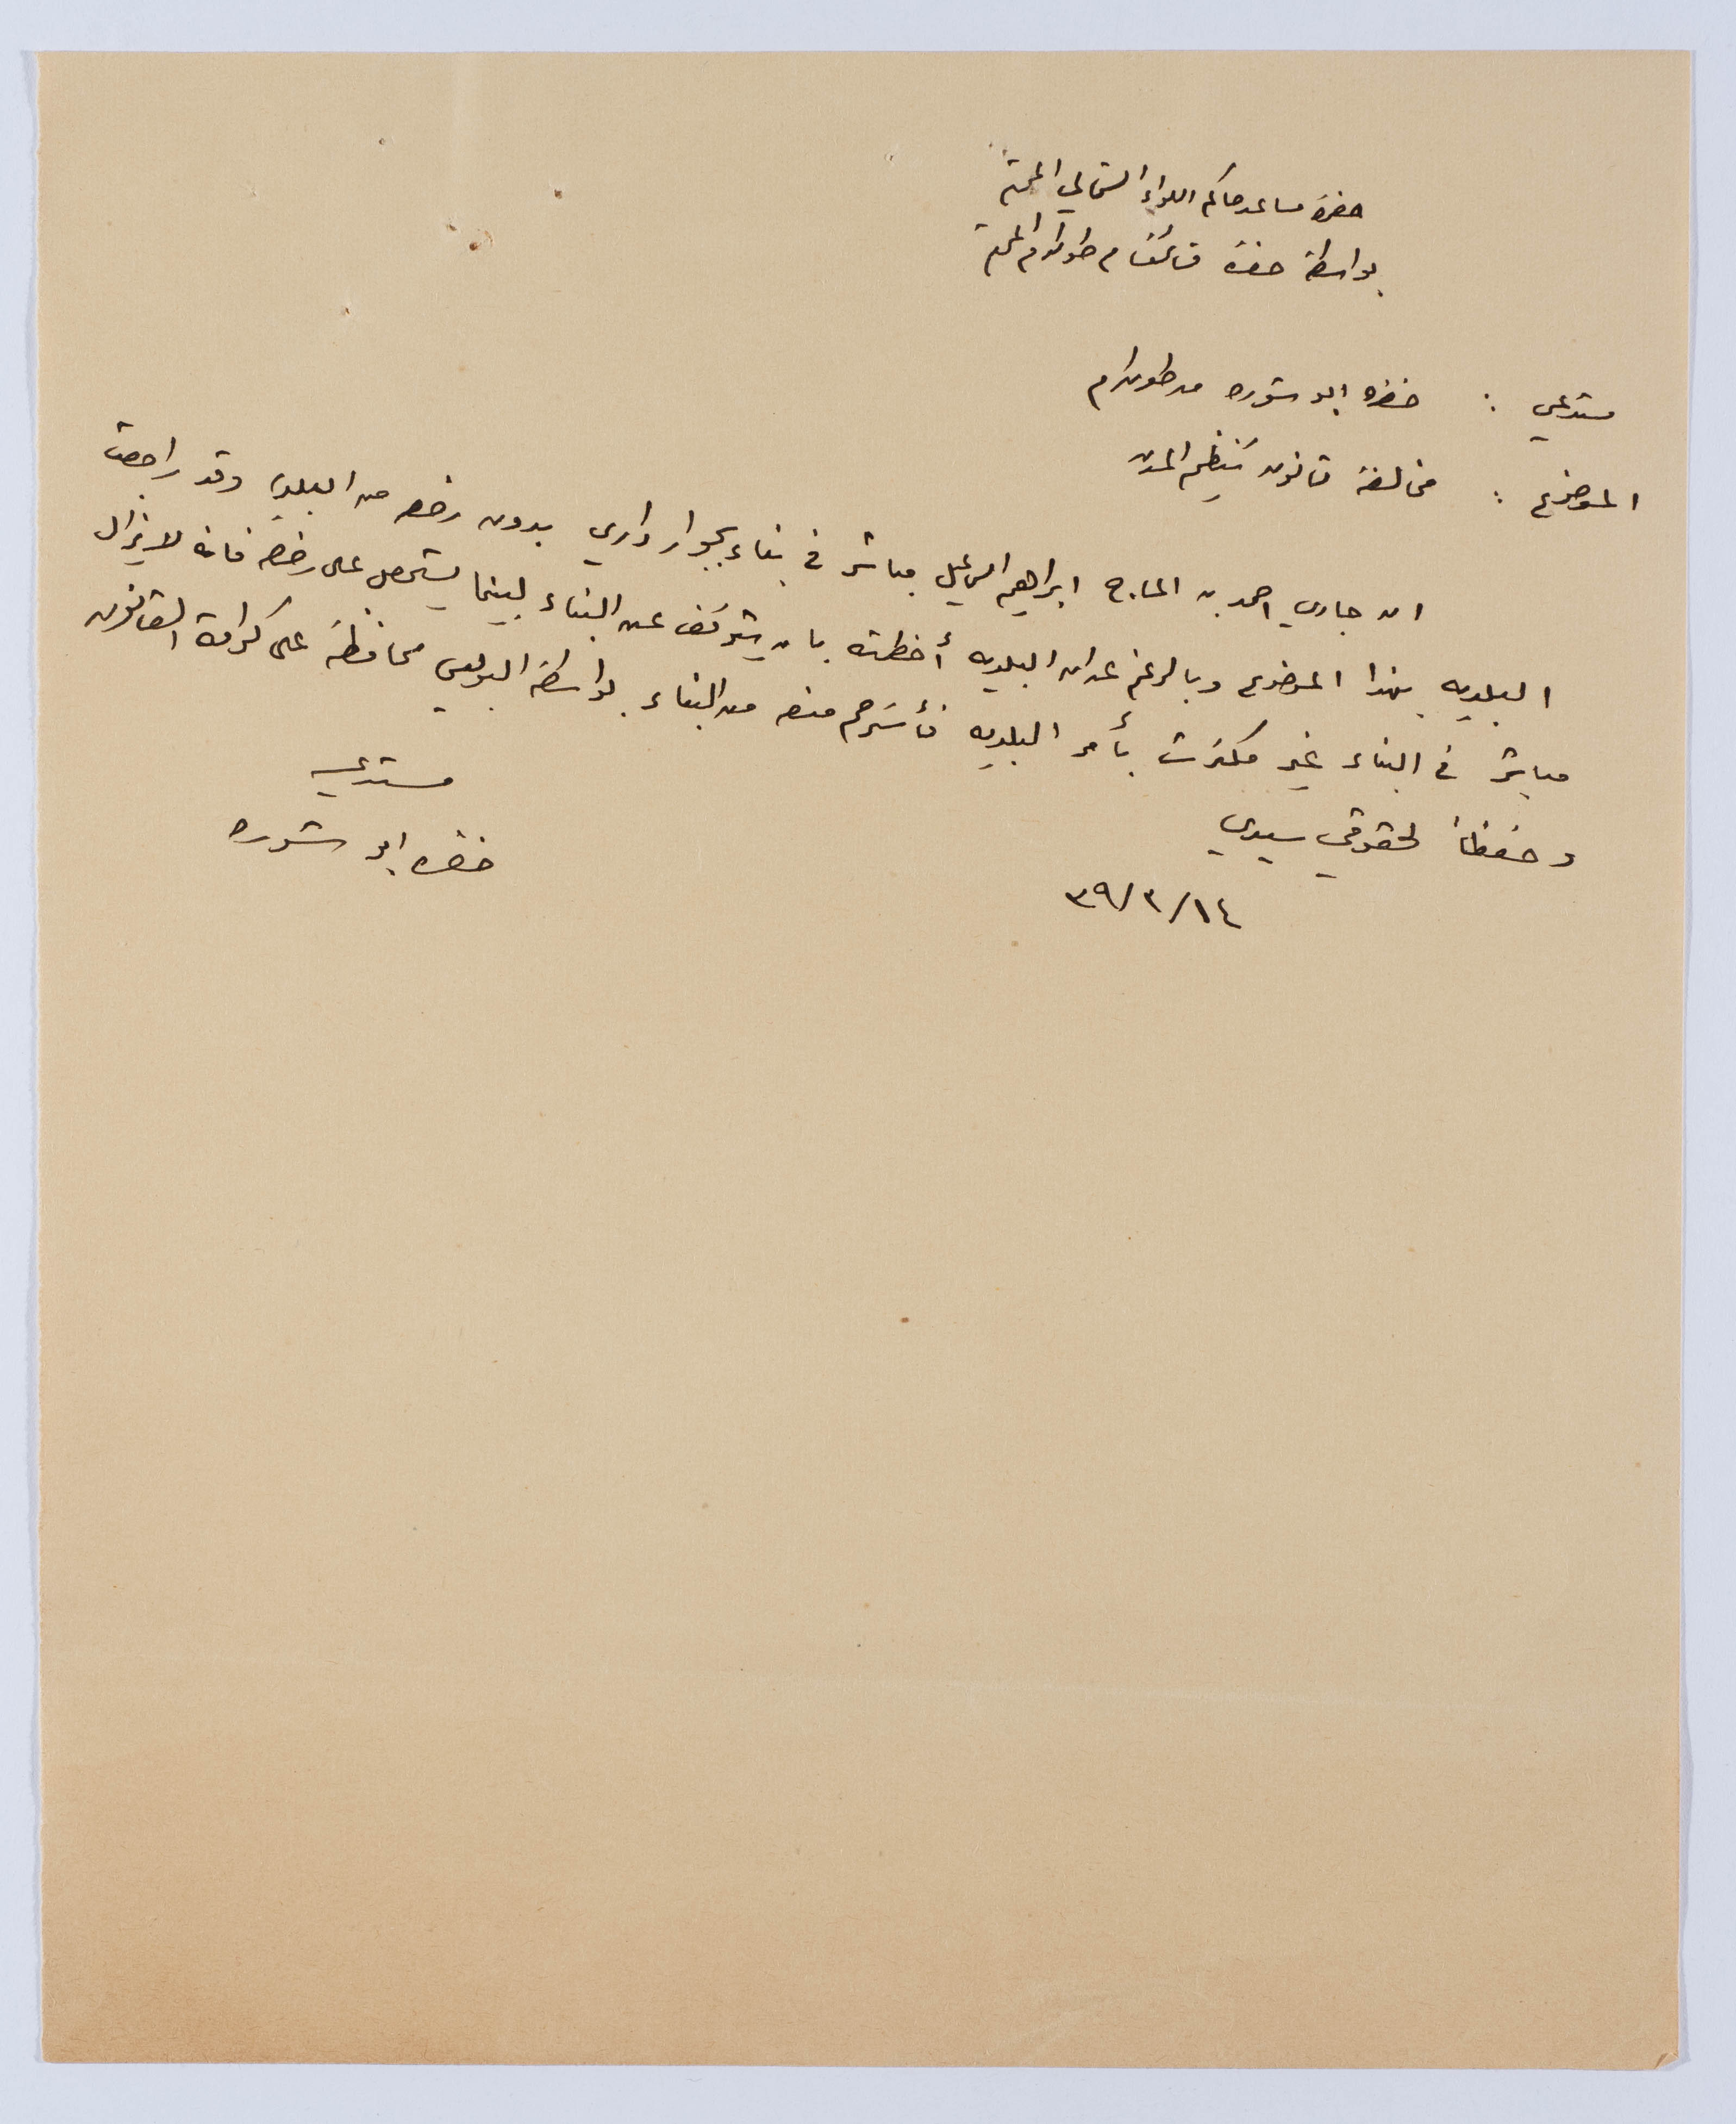 حضرة مساعد حاكم اللواء الشمالي المحترم
بواسطة حضرة قائمقام طولكرم المحترم
مستدعي : خضره ابو شوره من طولكرم
الموضوع : مخالفة قانون تنظيم المدن
ان جاري احمد بن الحاج ابراهيم اسماعيل مباشر في بناء بجوار داري بدون رخصه من البلديه وقد راجعت
البلديه بهذا الموضوع وبالرغم عن ان البلديه أخطرته بان يتوقف عن البناء بينما يستحصل على رخصه فانه لا يزال
مباشر في البناء غير مكترث بأمر البلديه فأسترحم منعه من البناء بواسطة البوليس محافظة على كرامة القانون
وحفظاً لحقوقي سيدي
١٤/٣/٣٩
مستدعيه
خضره ابو شوره